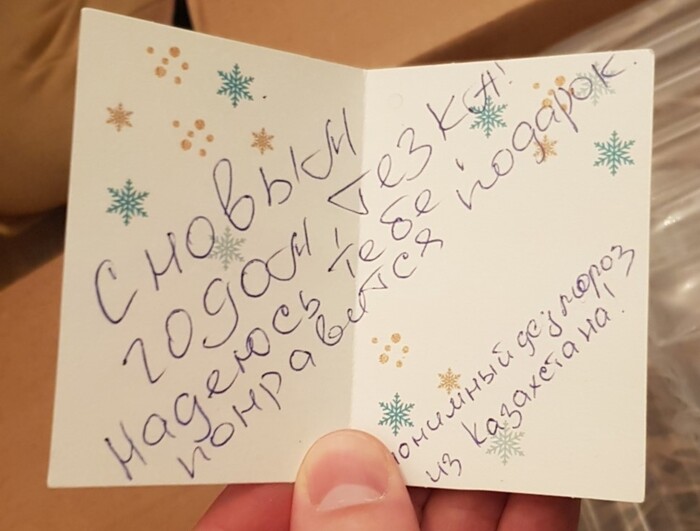 С новым
годом, тезка!
Надеюсь тебе подарок
понравится
нонимный дед мороз
из Казахстана!